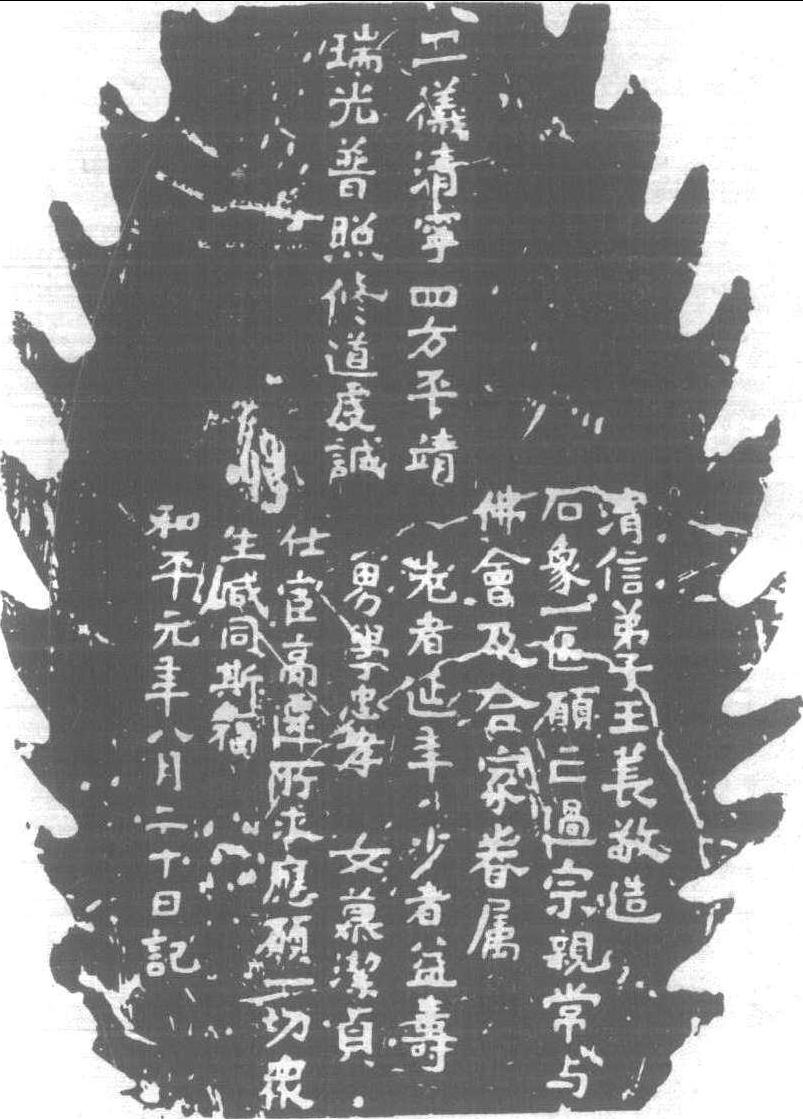 二儀清寧四方平靖
瑞光普照修道虔誠
清信弟子王敬造
石象一區願亡過宗親常与
佛會及合家眷属
老者延年少者益壽
男學忠孝 女慕潔貞
仕宦高遷所求應願一切衆
生咸同斯福
和平元年八月二十日記